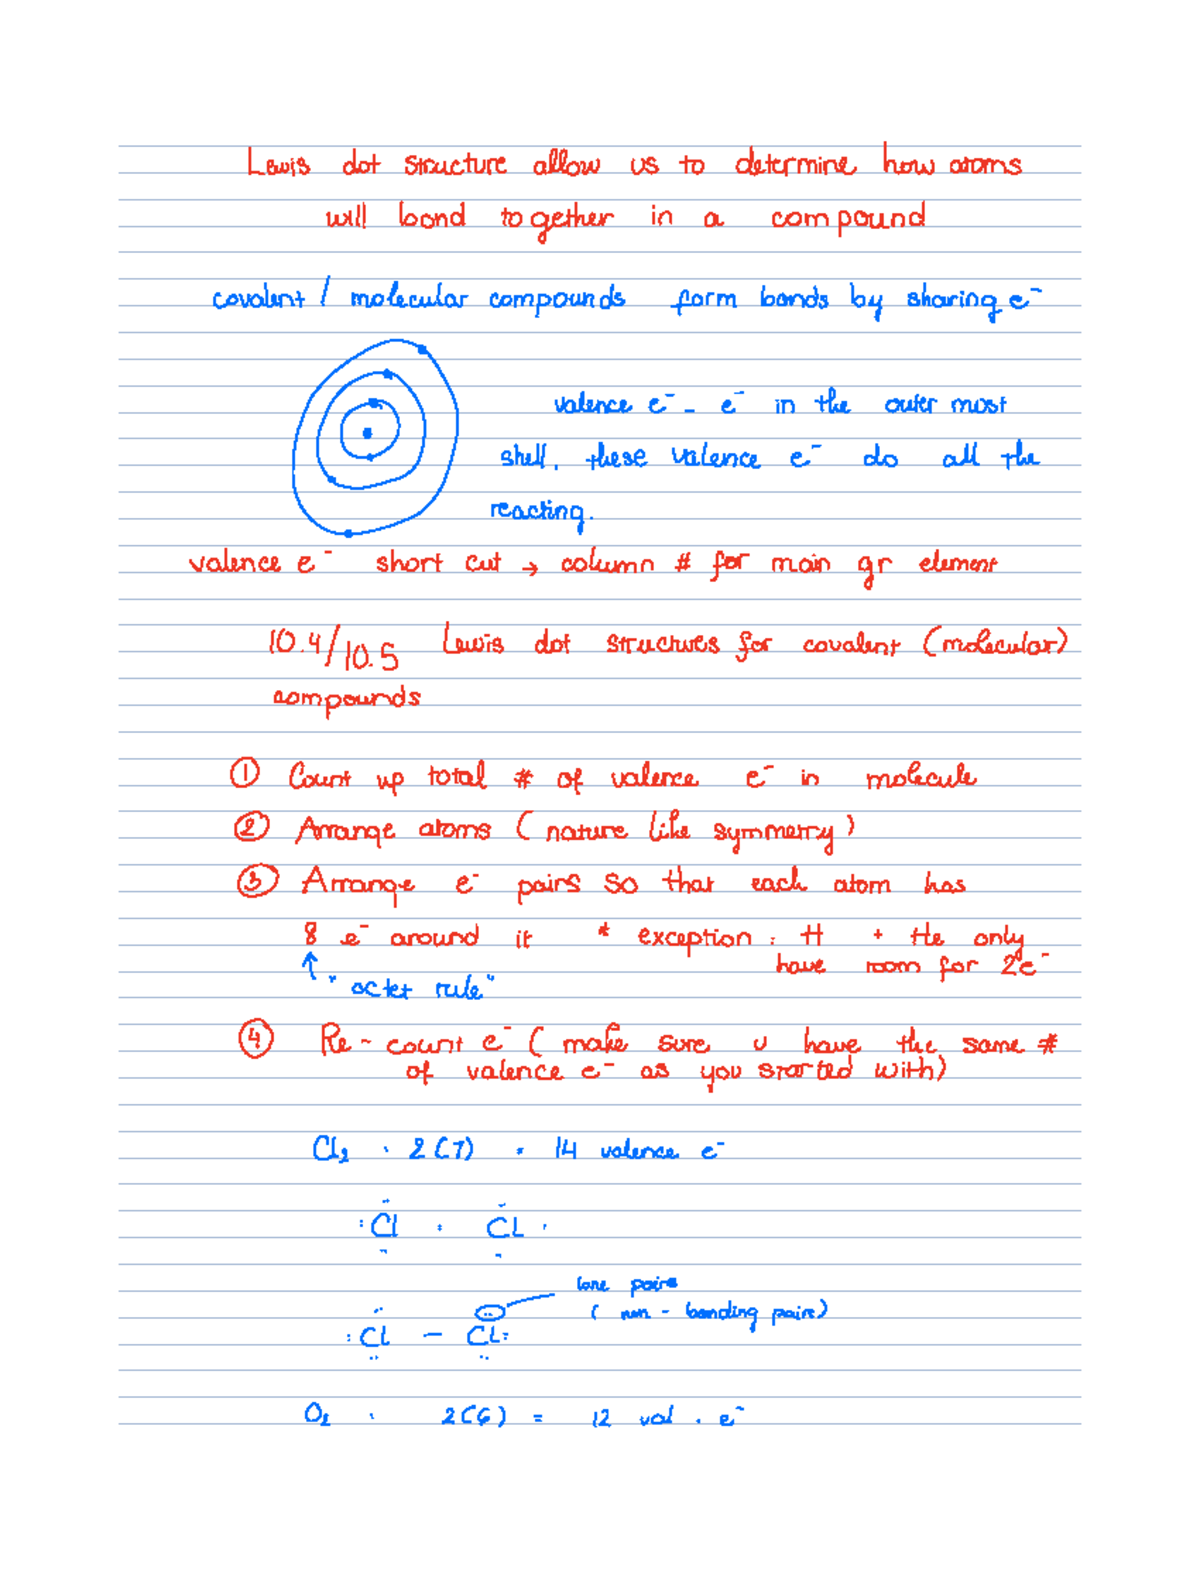 Lewis dot structure allow us to determine how atoms
will bond together in a compound
covalent / molecular compounds form bonds by sharing e⁻
valence e⁻ - e⁻ in the outer most
shell, these valence e⁻ do all the
reacting.
valence e⁻ short cut → column # for main gr element
10.4/10.5 Lewis dot structures for covalent (molecular)
compounds
① Count up total # of valence e⁻ in molecule
② Arrange atoms ( nature like symmetry )
③ Arrange e⁻ pairs so that each atom has
8 e⁻ around it * exception : H + He only
have room for 2e⁻
↑ "octet rule"
④ Re - count e⁻ ( make sure u have the same #
of valence e⁻ as you started with)
Cl₂ : 2(7) = 14 valence e⁻
:Cl : Cl :
lone pairs
( non - bonding pairs)
:Cl — Cl:
O₂ : 2(6) = 12 val . e⁻